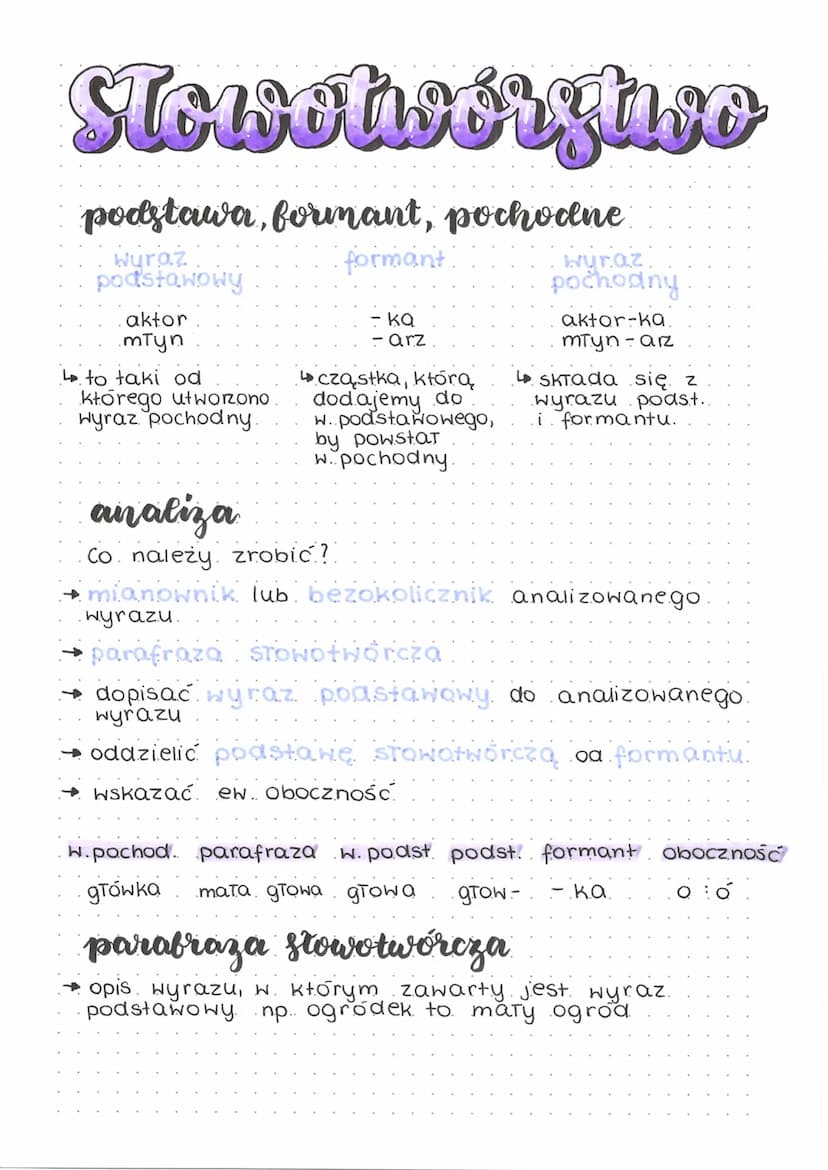 słowotwórstwo
podstawa, formant, pochodne
wyraz podstawowy formant wyraz pochodny
aktor -ka aktor-ka
młyn -arz młyn-arz
↳ to taki od
którego utworzono
wyraz pochodny
↳ cząstka, którą
dodajemy do
w. podstawowego,
by powstał
w. pochodny
↳ składa się z
wyrazu podst.
i formantu.
analiza
Co należy zrobić?
→ mianownik lub bezokolicznik analizowanego
wyrazu
→ parafraza słowotwórcza
→ dopisać wyraz podstawowy do analizowanego
wyrazu
→ oddzielić podstawę słowotwórczą od formantu
→ wskazać ew. oboczność
w.pochod. parafraza w.podst podst. formant oboczność
główka mała głowa głowa głow- -ka o:ó
parafraza słowotwórcza
→ opis wyrazu, w którym zawarty jest wyraz
podstawowy np. ogródek to mały ogród